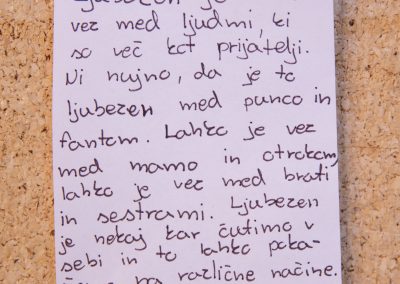 Ljubezen je
vez med ljudmi, ki
so več kot prijatelji.
Ni nujno, da je to
ljubezen med punco in
fantom. Lahko je vez
med mamo in otrokom,
lahko je vez med brati
in sestrami. Ljubezen
je nekaj kar čutimo v
sebi in to lahko poka-
na različne načine.